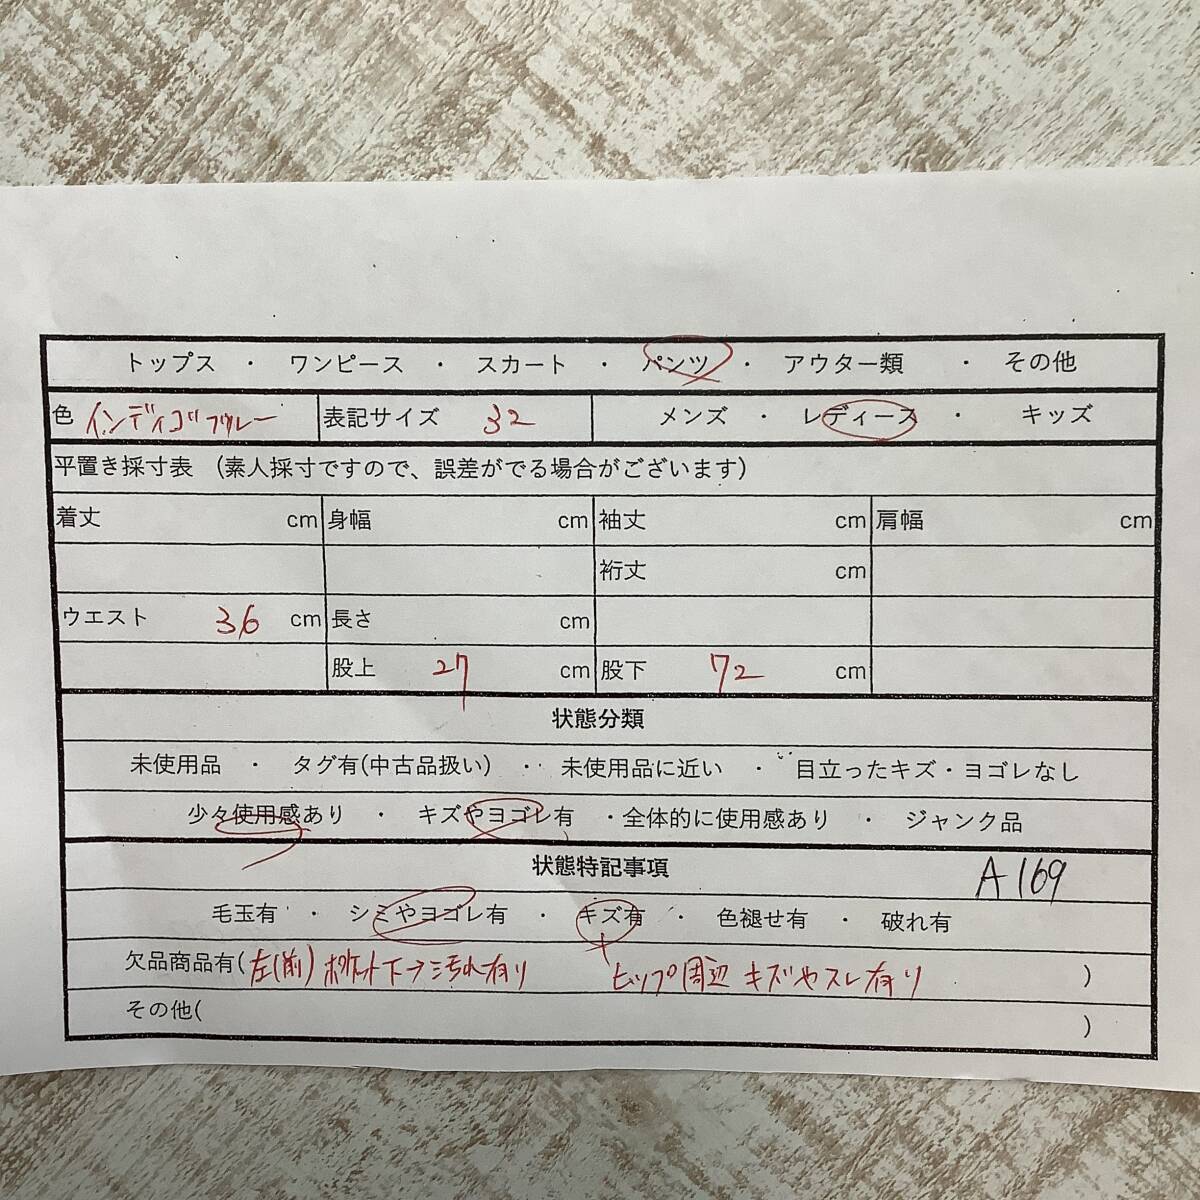 トップス ・ ワンピース ・ スカート ・ パンツ ・ アウター類 ・ その他
色 インディゴブルー 表記サイズ 32 メンズ ・ レディース ・ キッズ
平置き採寸表 (素人採寸ですので、誤差がでる場合がございます)
着丈 cm 身幅 cm 袖丈 cm 肩幅 cm
裄丈 cm
ウエスト 36 cm 長さ cm
股上 27 cm 股下 72 cm
状態分類
未使用品 ・ タグ有(中古品扱い) ・ 未使用品に近い ・ 目立ったキズ・ヨゴレなし
少々使用感あり ・ キズやヨゴレ有 ・全体的に使用感あり ・ ジャンク品
状態特記事項 A169
毛玉有 ・ シミやヨゴレ有 ・ キズ有 ・ 色褪せ有 ・ 破れ有
欠品商品有(左(前)ポケット下 汚れ有り ヒップ周辺 キズやスレ有り )
その他( )